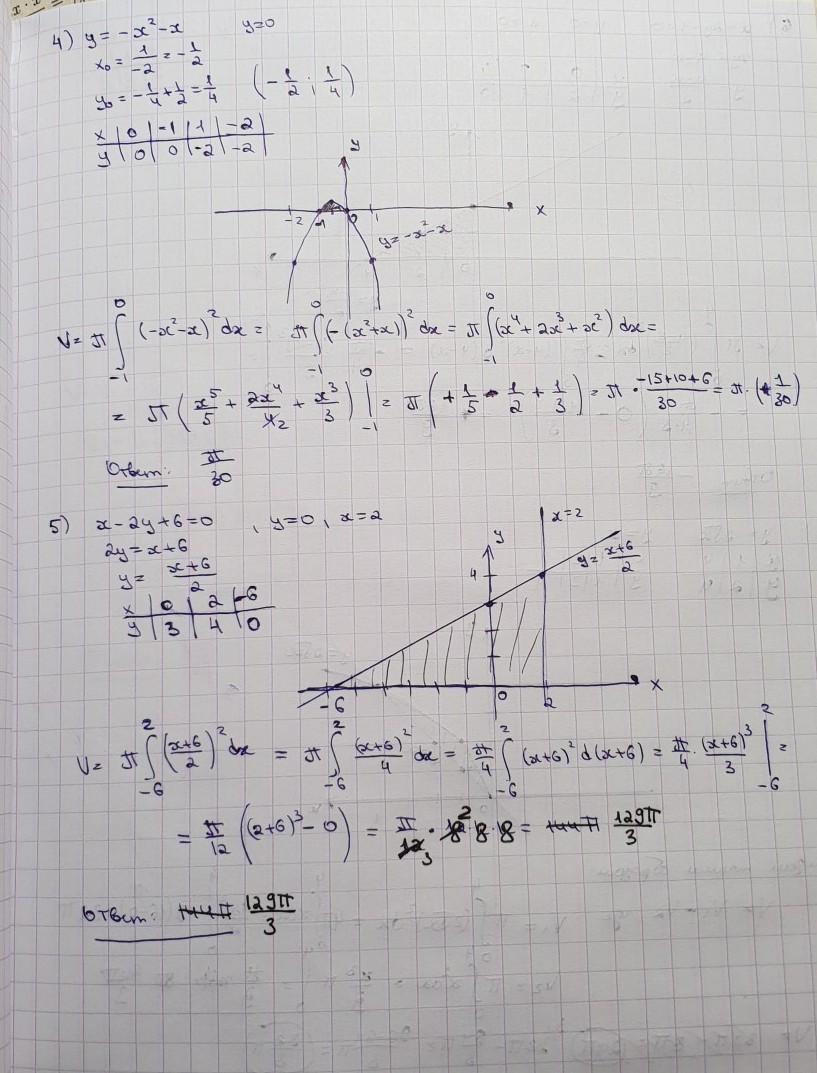 4) y = -x² - x    y=0
x₀ = 1/-2 = -1/2
y₀ = -1/4 + 1/2 = 1/4    (-1/2 ; 1/4)
x | 0 | -1 | 1 | -2
y | 0 | 0 | -2 | -2
y
-2 -1 0 1 x
y = -x² - x
V = π ∫₋₁⁰ (-x² - x)² dx = π ∫₋₁⁰ (-(x² + x))² dx = π ∫₋₁⁰ (x⁴ + 2x³ + x²) dx =
= π (x⁵/5 + 2x⁴/4₂ + x³/3) |₋₁⁰ = π (+1/5 - 1/2 + 1/3) = π · (-15+10+6)/30 = π · (+1/30)
Ответ: π/30
5) x - 2y + 6 = 0 , y=0, x=2
2y = x+6
y = (x+6)/2
x | 0 | 2 | -6
y | 3 | 4 | 0
x=2
y
y = (x+6)/2
4
-6 0 2 x
V = π ∫₋₆² ((x+6)/2)² dx = π ∫₋₆² (x+6)²/4 dx = π/4 ∫₋₆² (x+6)² d(x+6) = π/4 · (x+6)³/3 |₋₆² =
= π/12 ((2+6)³ - 0) = π/12₃ · 8² · 8 · 8 = 144π 129π/3
Ответ: 144π 129π/3